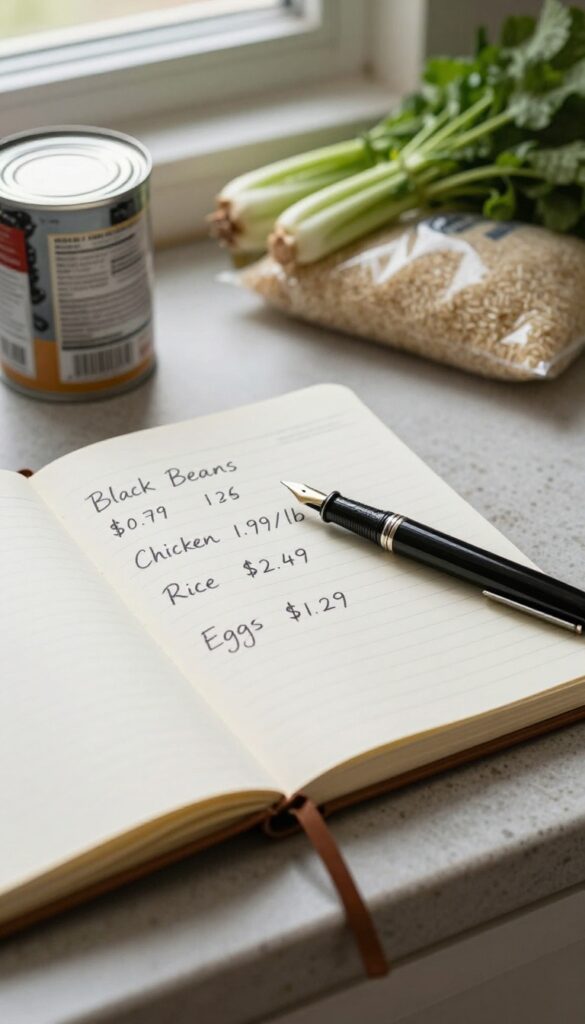 Black Beans
$0.79 126
Chicken 1.99/lb
Rice $2.49
Eggs $1.29